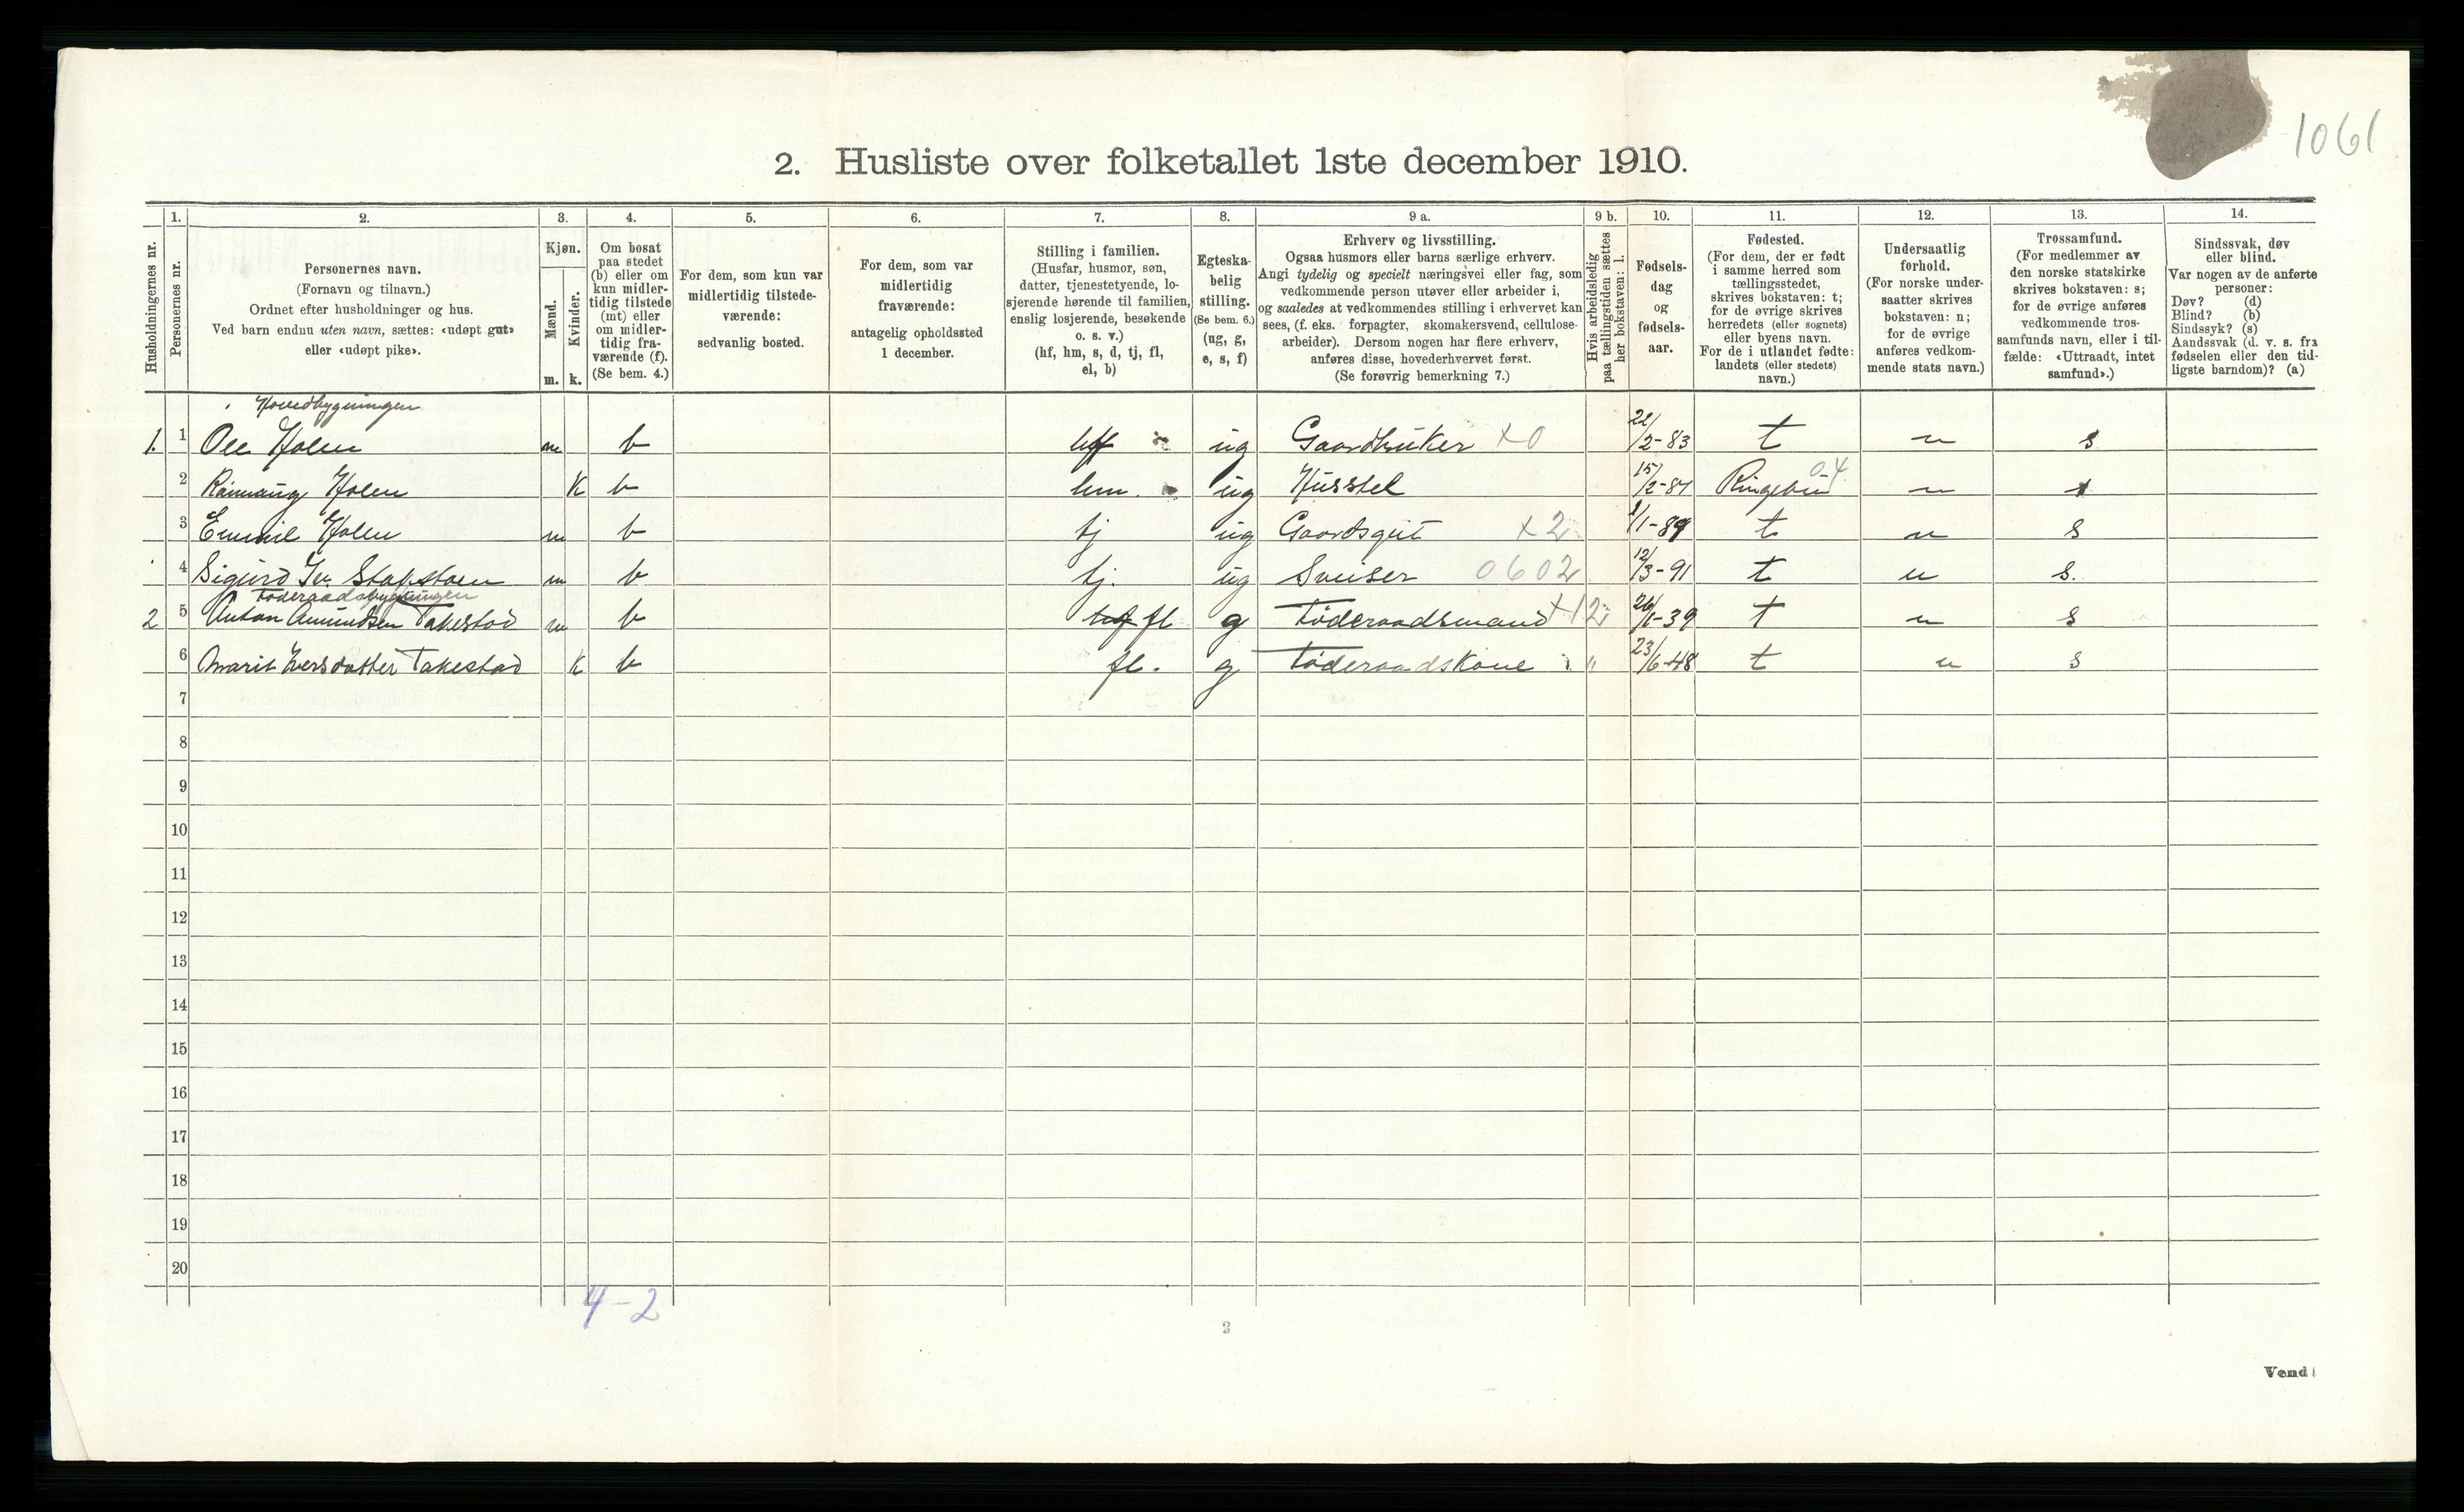 1061
2. Husliste over folketallet 1ste december 1910.
1. 2. 3. 4. 5. 6. 7. 8. 9 a. 9 b. 10. 11. 12. 13. 14.
Husholdningernes nr.
Personernes nr.
Personernes navn.
(Fornavn og tilnavn.)
Ordnet efter husholdninger og hus.
Ved barn endnu uten navn, sættes: «udøpt gut»
eller «udøpt pike».
Kjøn.
Mænd.
m.
Kvinder.
k.
Om bosat
paa stedet
(b) eller om
kun midler-
tidig tilstede
(mt) eller
om midler-
tidig fra-
værende (f).
(Se bem. 4.)
For dem, som kun var
midlertidig tilstede-
værende:
sedvanlig bosted.
For dem, som var
midlertidig
fraværende:
antagelig opholdssted
1 december.
Stilling i familien.
(Husfar, husmor, søn,
datter, tjenestetyende, lo-
sjerende hørende til familien,
enslig losjerende, besøkende
o. s. v.)
(hf, hm, s, d, tj, fl,
el, b)
Egteska-
belig
stilling.
(Se bem. 6.)
(ug, g,
e, s, f)
Erhverv og livsstilling.
Ogsaa husmors eller barns særlige erhverv.
Angi tydelig og specielt næringsvei eller fag, som
vedkommende person utøver eller arbeider i,
og saaledes at vedkommendes stilling i erhvervet kan
sees, (f. eks. forpagter, skomakersvend, cellulose-
arbeider). Dersom nogen har flere erhverv,
anføres disse, hovederhvervet først.
(Se forøvrig bemerkning 7.)
Hvis arbeidsledig
paa tællingstiden sættes
her bokstaven: l.
Fødsels-
dag
og
fødsels-
aar.
Fødested.
(For dem, der er født
i samme herred som
tællingsstedet,
skrives bokstaven: t;
for de øvrige skrives
herredets (eller sognets)
eller byens navn.
For de i utlandet fødte:
landets (eller stedets)
navn.)
Undersaatlig
forhold.
(For norske under-
saatter skrives
bokstaven: n;
for de øvrige
anføres vedkom-
mende stats navn.)
Trossamfund.
(For medlemmer av
den norske statskirke
skrives bokstaven: s;
for de øvrige anføres
vedkommende tros-
samfunds navn, eller i til-
fælde: «Uttraadt, intet
samfund».)
Sindssvak, døv
eller blind.
Var nogen av de anførte
personer:
Døv? (d)
Blind? (b)
Sindssyk? (s)
Aandssvak (d. v. s. fra
fødselen eller den tid-
ligste barndom)? (a)
Hovedbygningen
1. 1 Ole Holen m b hf ug Gaardbruker x0 22/2-83 t n s
2 Holen K b hm. ug Husstel 15/2-87 Ringebu 04 n s
3 Emmil Holen m b tj ug Gaardsgut x2 1/1-89 t n s
4 Sigurd Stakstoen m b tj. ug Sveiser 0602 12/3-91 t n s.
Føderaadsbygningen
2 5 Anton Amundsen Takestad m b hf fl g Føderaadsmand x12 26/1-39 t n s
6 Marit Iversdatter Takestad K b fl. g Føderaadskone " 23/6-48 t n s
7
8
9
10
11
12
13
14
15
16
17
18
19
20
4-2
2
Vend!